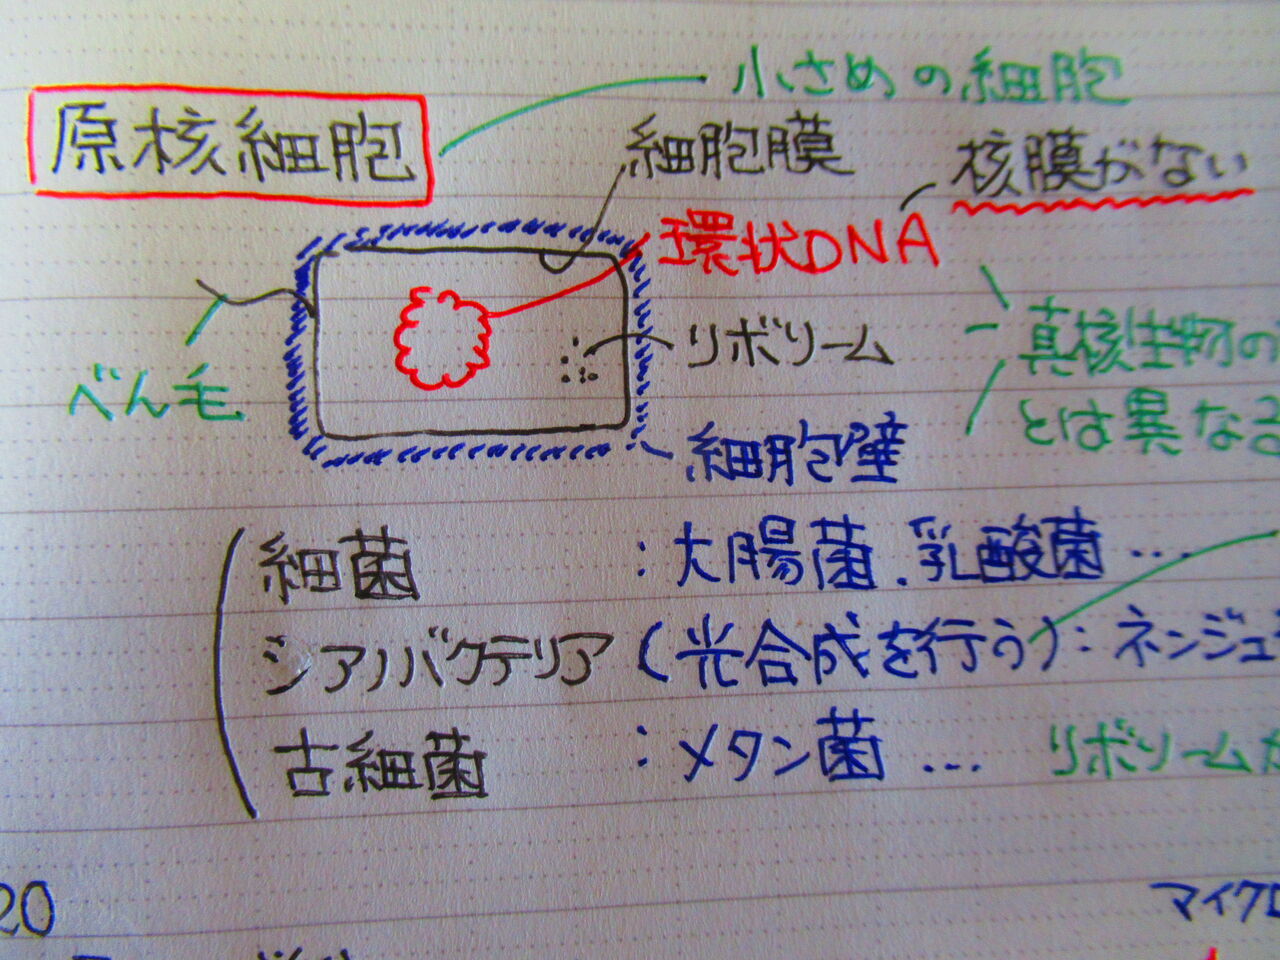 小さめの細胞
原核細胞
細胞膜
核膜がない
環状DNA
リボソーム
真核生物の
とは異なる
べん毛
細胞壁
細菌 : 大腸菌、乳酸菌 …
シアノバクテリア (光合成を行う) : ネンジュ
古細菌 : メタン菌 …
リボソームが
20
マイクロ